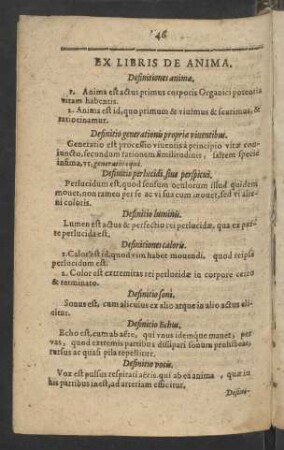 46
EX LIBRIS DE ANIMA.
Definitiones animæ.
1. Anima est actus primus corporis Organici potentia
vitam habentis.
2. Anima est id, quo primum & viuimus & sentimus, &
ratiocinamur.
Definitio generationis propria viuentibus.
Generatio est processio viuentis à principio vitæ con-
iuncto, secundum rationem similitudinis, saltem speciei
infimæ, vt, generatio equi.
Definitio perlucidi, siue perspicui.
Perlucidum est, quod sensum oculorum illud quidem
mouet, non tameo per se ac vi sua cum mouet, sed vi alie-
ni coloris.
Definitio luminis.
Lumen est actus & perfectio rei perlucidæ, qua ex par-
te perlucida est.
Definitiones coloris.
1. Color est id, quod vim habet mouendi, quod reipsa
perlucidum est.
2. Color est extremitas rei perlucidæ in corpore certo
& terminato.
Definitio soni.
Sonus est, cum alicuius ex alio atque in alio actus eli-
citur.
Definitio Echus.
Echo est, cum ab aëre, qui vnus idemque manet, per
vas, quod extremis partibus dissipari sonum prohibeat,
rursus ac quasi pila repellitur.
Definitio vocis.
Vox est pulsus respirati aëris, qui ab ea anima, quæ in
his partibus inest, ad arteriam efficitur.
Defini-